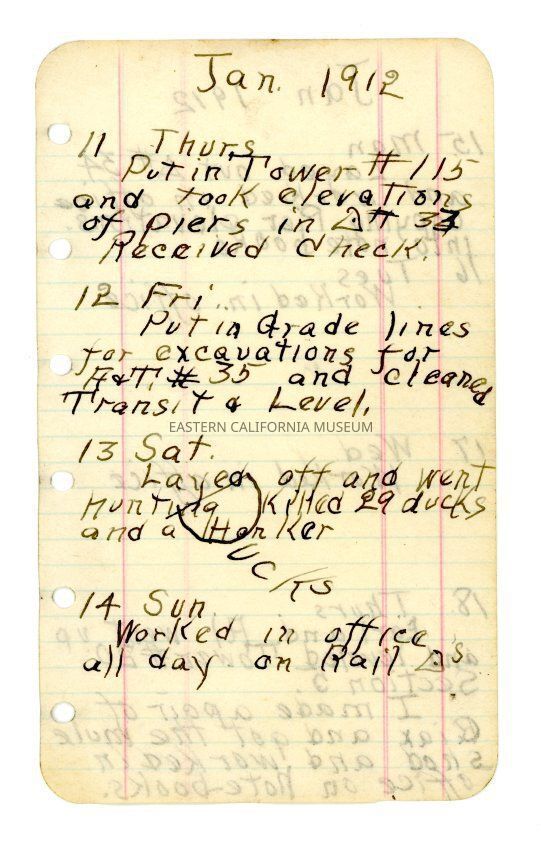 Jan. 1912
11 Thurs
Put in Tower # 115
and took elevations
of piers in △ # 33
Received check.
12 Fri.
Put in Grade lines
for excavations for
# 35 and cleaned
Transit & Level.
13 Sat.
Layed off and went
Hunting Killed 29 ducks
and a Honker
Ducks
14 Sun
Worked in office
all day on Rail △'s
EASTERN CALIFORNIA MUSEUM